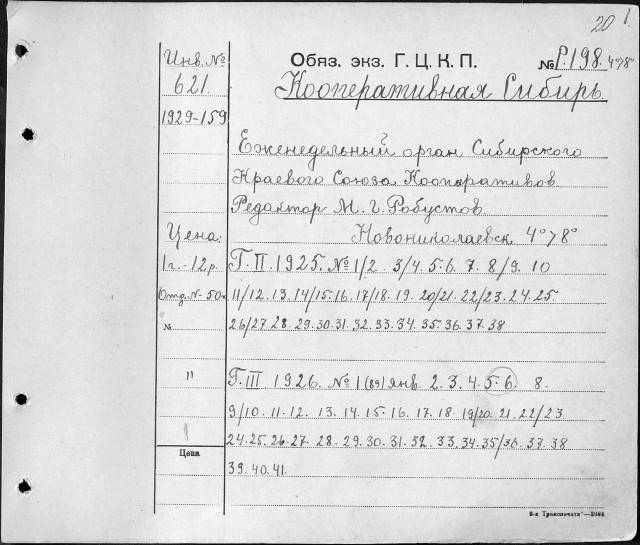 20 1.
Инв. №
621.
1929-159
Обяз. экз. Г. Ц. К. П. № Р.198. 4°78°
Кооперативная Сибирь.
Еженедельный орган Сибирского
Краевого Союза Кооперативов.
Редактор М. Г. Робустов.
Новониколаевск 4°78°
Цена:
1 г. - 12 р.
Отд. № - 50к
№
"
Цена
Г. II. 1925. № 1/2. 3/4. 5. 6. 7. 8/9. 10
11/12. 13. 14/15. 16. 17/18. 19. 20/21. 22/23. 24. 25
26/27. 28. 29. 30. 31. 32. 33. 34. 35. 36. 37. 38
Г. III 1926. № 1 (89) янв. 2. 3. 4. 5. 6 8.
9/10. 11. 12. 13. 14. 15. 16. 17. 18. 19/20. 21. 22/23
24. 25. 26. 27. 28. 29. 30. 31. 32. 33. 34. 35/36. 37. 38
39. 40. 41.